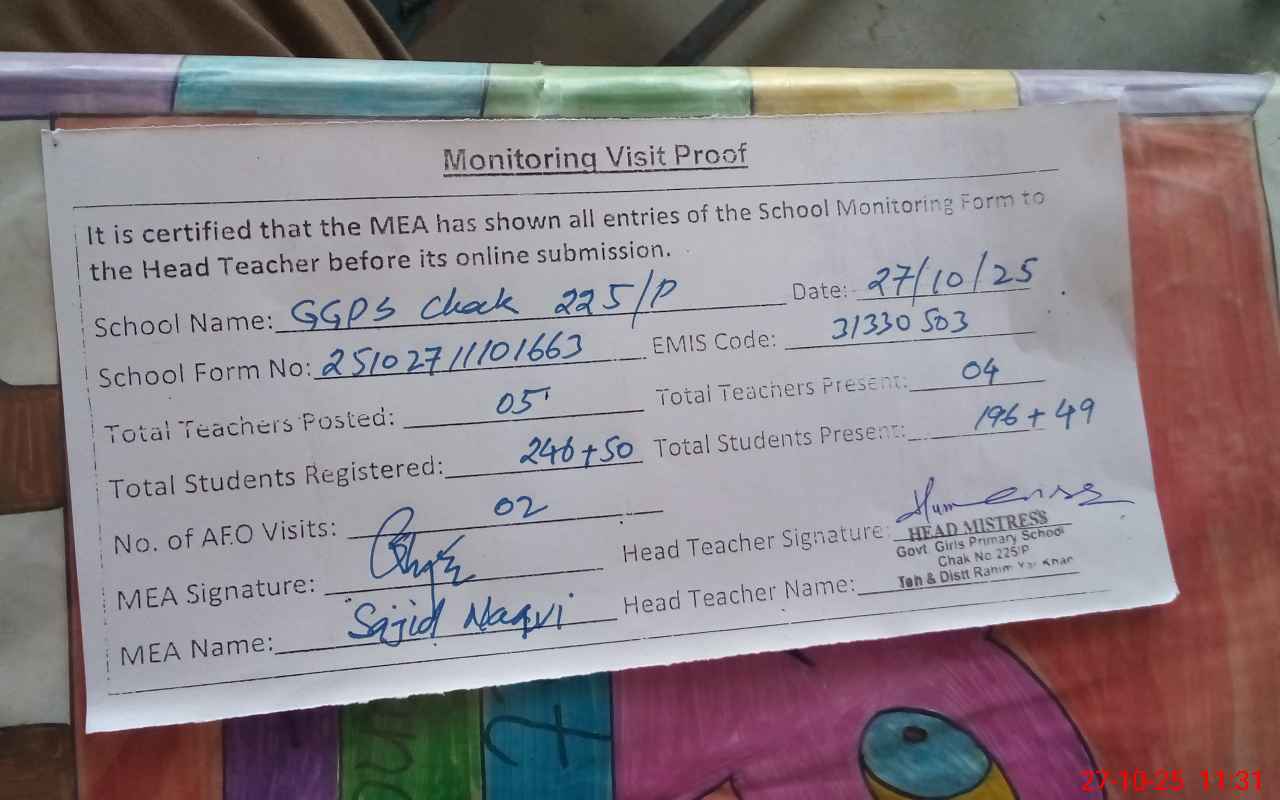 Monitoring Visit Proof
It is certified that the MEA has shown all entries of the School Monitoring Form to
the Head Teacher before its online submission.
School Name: GGPS Chak 225/P Date: 27/10/25
School Form No: 25102711101663 EMIS Code: 31330503
Total Teachers Posted: 05 Total Teachers Present: 04
Total Students Registered: 246+50 Total Students Present: 196+49
No. of AEO Visits: 02
MEA Signature: Head Teacher Signature:
HEAD MISTRESS
Govt Girls Primary School
Chak No 225/P
Teh & Distt Rahim Yar Khan
MEA Name: Sajid Naqvi Head Teacher Name:
27-10-25 11:31